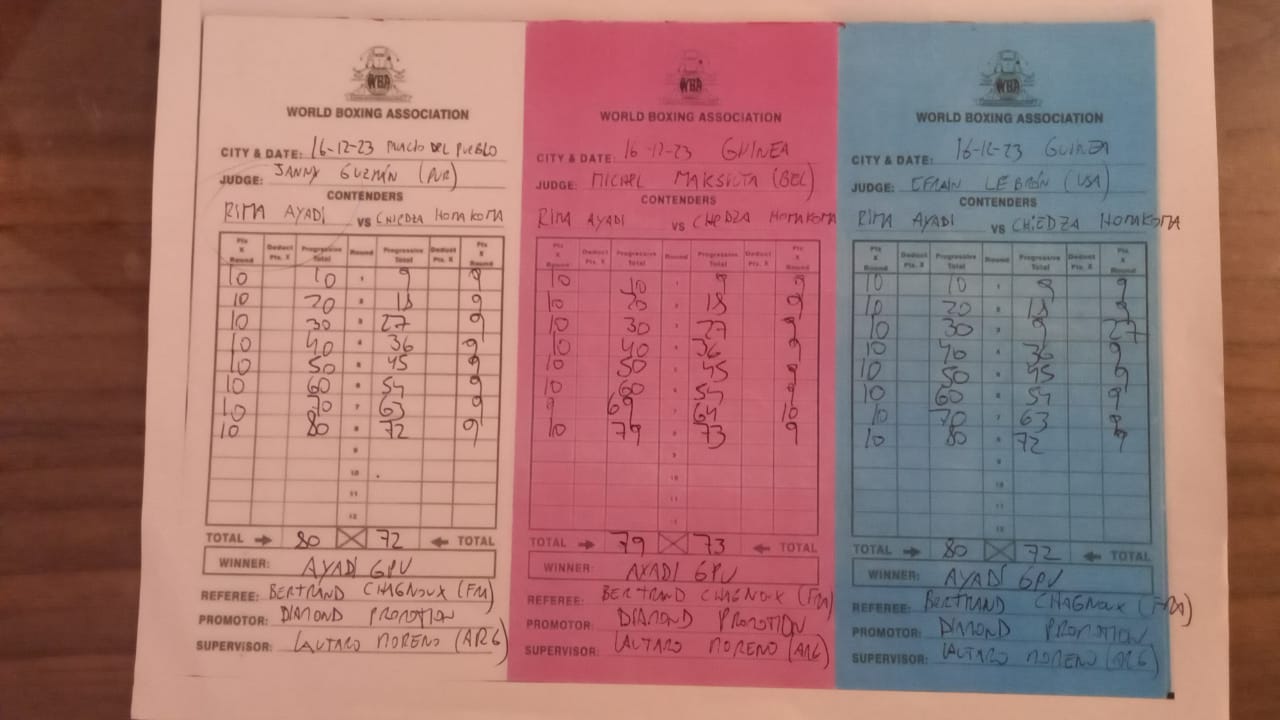 WBA
WORLD BOXING ASSOCIATION
CITY & DATE: 16-12-23 PALACIO DEL PUEBLO
JUDGE: JANNY GUZMÁN (PUR)
CONTENDERS
RIMA AYADI VS CHIEDZA HOMAKOMA
Pts X Round Deduct Pts. X Progressive Total Round Progressive Total Deduct Pts. X Pts X Round
10 10 9 9
10 20 18 9
10 30 27 9
10 40 36 9
10 50 45 9
10 60 54 9
10 70 63 9
10 80 72 9
9
10
11
12
TOTAL 80 72 TOTAL
WINNER: AYADI GPU
REFEREE: BERTRAND CHAGNOUX (FRA)
PROMOTOR: DIAMOND PROMOTION
SUPERVISOR: LAUTARO MORENO (ARG)
WBA
WORLD BOXING ASSOCIATION
CITY & DATE: 16-12-23 GUINEA
JUDGE: MICHEL MAKSILTA (BEL)
CONTENDERS
RIMA AYADI VS CHIEDZA HOMAKOMA
Pts X Round Deduct Pts. X Progressive Total Round Progressive Total Deduct Pts. X Pts X Round
10 10 9 9
10 20 18 9
10 30 27 9
10 40 36 9
10 50 45 9
10 60 54 9
9 69 64 10
10 79 73 9
9
10
11
12
TOTAL 79 73 TOTAL
WINNER: AYADI GPU
REFEREE: BERTRAND CHAGNOUX (FRA)
PROMOTOR: DIAMOND PROMOTION
SUPERVISOR: LAUTARO MORENO (ARG)
WBA
WORLD BOXING ASSOCIATION
CITY & DATE: 16-12-23 GUINEA
JUDGE: EFRAIN LEBRÓN (USA)
CONTENDERS
RIMA AYADI VS CHIEDZA HOMAKOMA
Pts X Round Deduct Pts. X Progressive Total Round Progressive Total Deduct Pts. X Pts X Round
10 10 9 9
10 20 18 9
10 30 9 27
10 40 36 9
10 50 45 9
10 60 54 9
10 70 63 9
10 80 72 9
9
10
11
12
TOTAL 80 72 TOTAL
WINNER: AYADI GPU
REFEREE: BERTRAND CHAGNOUX (FRA)
PROMOTOR: DIAMOND PROMOTION
SUPERVISOR: LAUTARO MORENO (ARG)